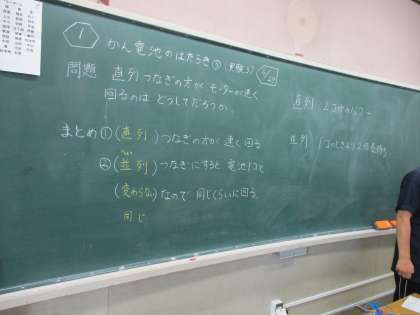 1 かん電池のはたらき③(実験3) 6/29
問題 直列つなぎの方がモーターが速く
回るのは どうしてだろうか。
まとめ ①(直列)つなぎの方が 速く回る
②(並列)つなぎにすると 電池1コと
(変わらない)なので 同じくらいに回る。
同じ
直列 2コ分のパワー
並列 1コのときより2倍長持ち